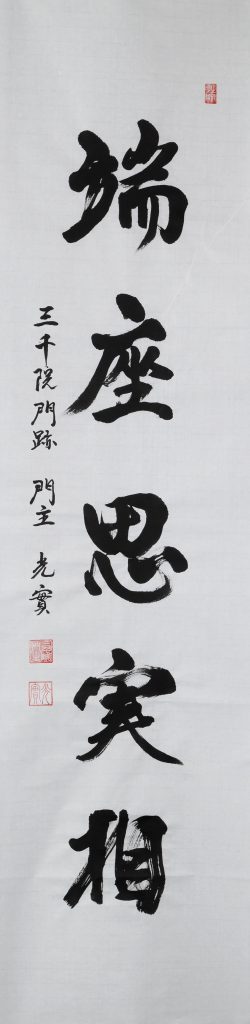 端座思実相
三千院門跡 門主 光實